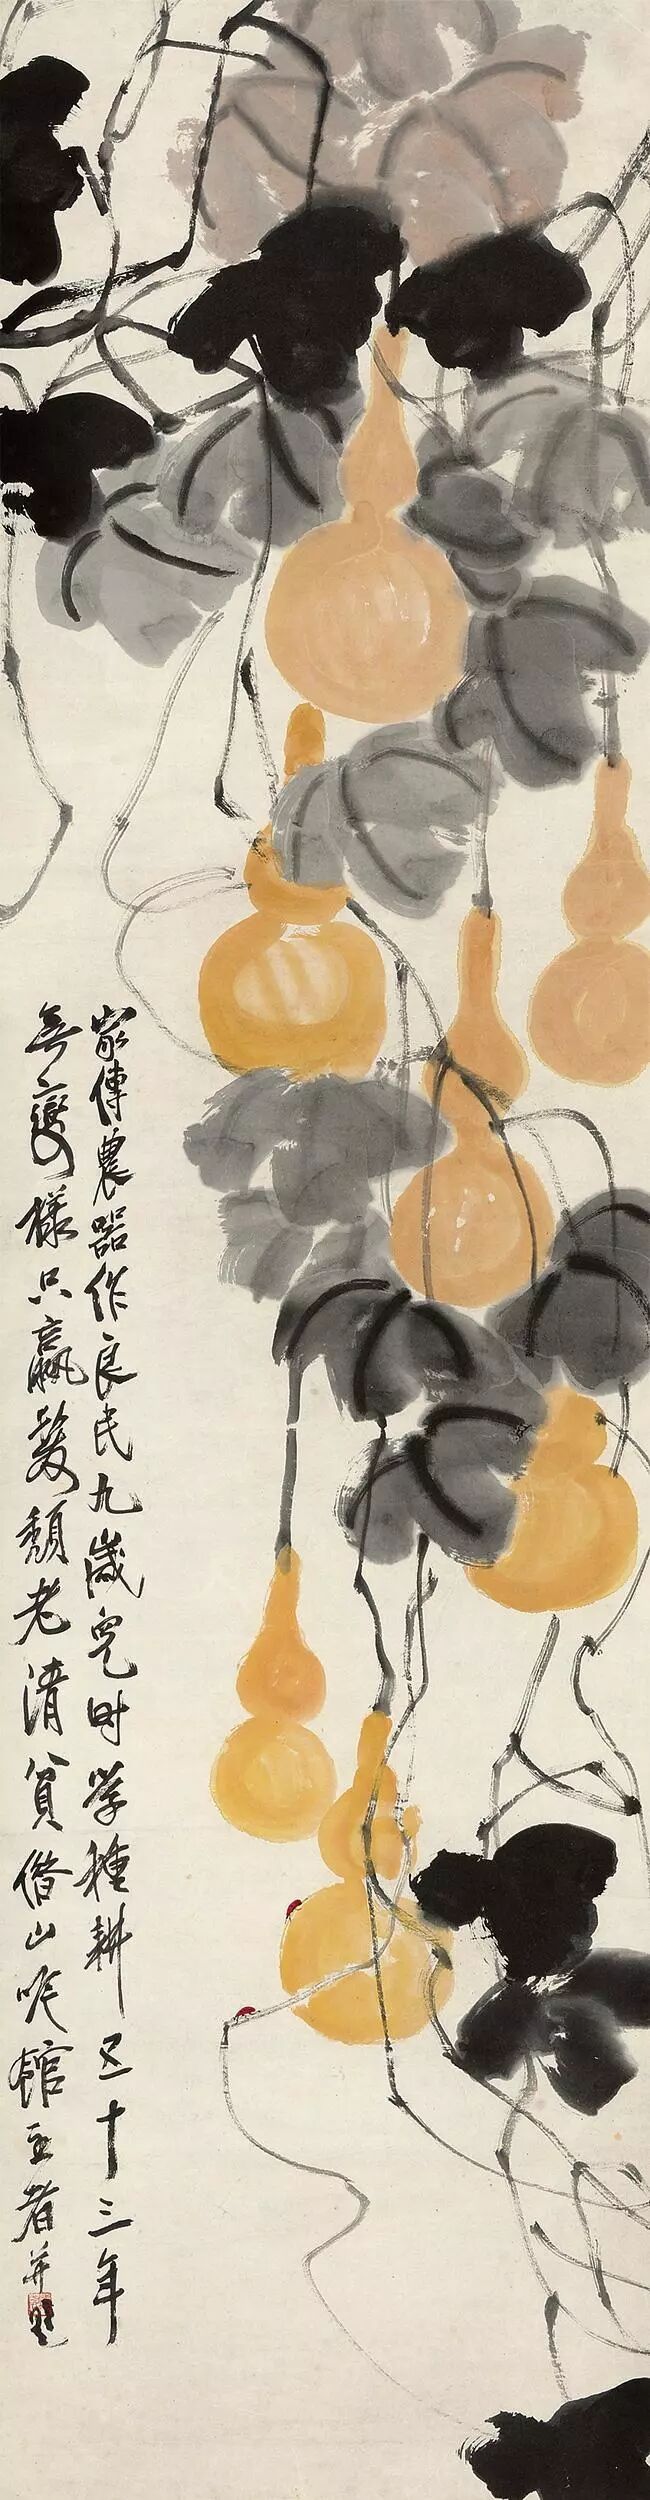 家傳農器作良民九歲兒時學種耕五十三年
無變樣只贏鬚髮老清貧借山吟館主者并題